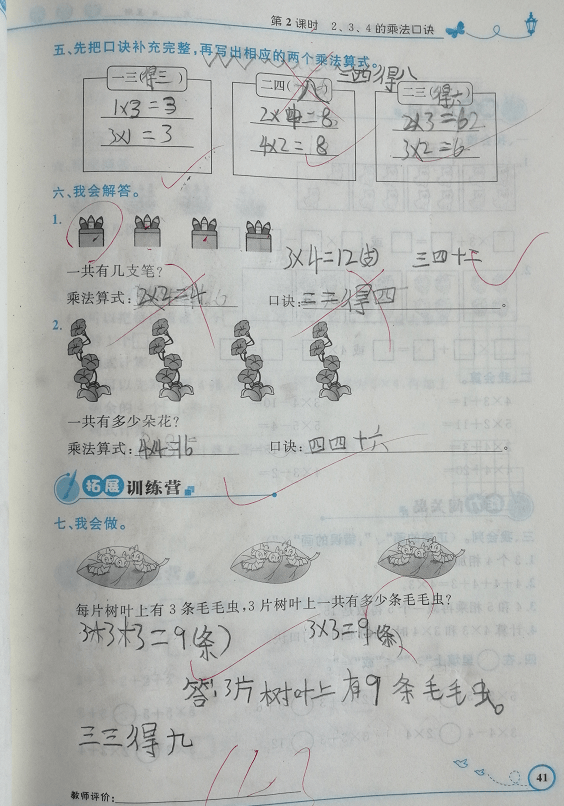 第2课时 2、3、4的乘法口诀
五、先把口诀补充完整,再写出相应的两个乘法算式。
三四得八
一三(得三) 二四(八) 二三(得六)
1×3=3 2×4=8 2×3=6
3×1=3 4×2=8 3×2=6
六、我会解答。
1.
3×4=12(支) 三四十二
一共有几支笔?
乘法算式:2×2=4 口诀:三三得四。
2.
一共有多少朵花?
乘法算式:4×4=16 口诀:四四十六。
拓展训练营
七、我会做。
每片树叶上有3条毛毛虫,3片树叶上一共有多少条毛毛虫?
3+3+3=9(条) 3×3=9(条)
答:3片树叶上有9条毛毛虫。
三三得九
教师评价:
41